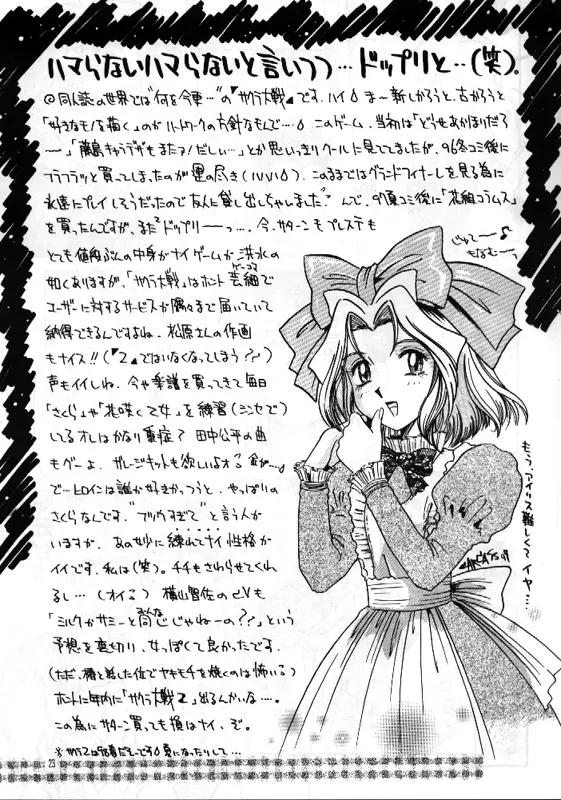 ハマらないハマらないと言いつつ…ドップリと‥(笑)。
◎同人誌の世界では“何を今更…”の『サクラ大戦』です。ハイ♢ ま〜新しかろうと、古かろうと
「好きなモノを描く」のがハートワークの方針なもんで…♢ このゲーム、当初は「どうせあかほりだろ
ー」「藤島キャラデザもまたァ!だしぃ…」とか思いっきりクールに見てましたが、96冬コミ後に
フラフラッと買ってしまったのが運の尽き(いいい♢)。このままではグランドフィナーレを見る為に
永遠にプレイしそうだったので友人に貸し出しちゃいました。んで、97夏コミ後に「花組コラムス」
を買ったんですが、まだドップリーーっ…。今、サターンもプレステも
とても値段ぶんの中身がナイゲームが洪水の
如くありますが、「サクラ大戦」はホント芸細で
ゲーコマ
ユーザーに対するサービスが隅々まで届いていて
納得できるんですよね。松原さんの作画
もナイス!!(『2』ではいなくなってしまう??)
声もイイしね。今や楽譜を買ってきて毎日
「さくら」や「花咲く乙女」を練習(シンセで)
してるオレはかなり重症? 田中公平の曲
もグーよ。ガレージキットも欲しいよオる 食が…。
で…ヒロインは誰が好きかっつうと、やっぱりの
さくらなんです。“ブリッ子すぎて”と言う人が
いますが、あの妙に練れてナイ性格が
イイです。私は(笑)。チチもさわらせてくれ
るし…(オイ♢) 横山智佐のCVも
「ミルクがサミーと同じ感じじゃねーの??」という
予想を裏切り、女っぽくて良かったです。
(ただ、椿と話した位でヤキモチを焼くのは怖いる)
ホントに年内に「サクラ大戦2」出るんかいな…。
この為にサターン買っても損はナイ、ぞ。
じゃじ〜♪
もなむーっ
もう、アイリス難しくてイヤ…
23